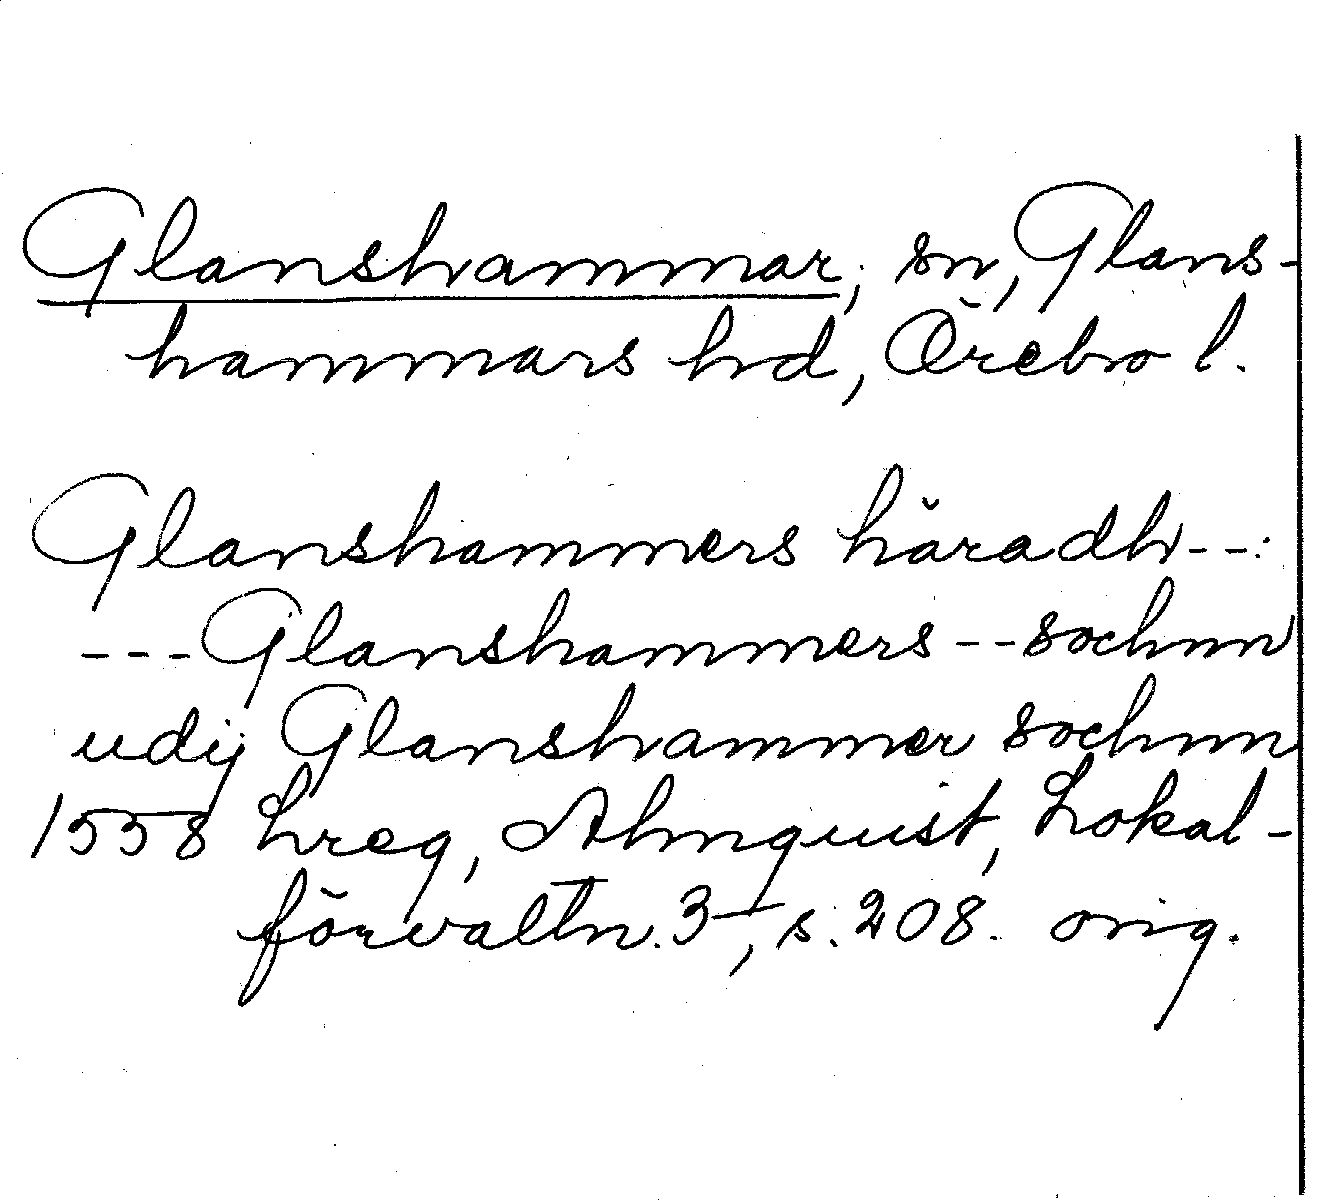 Glanshammar, sn, Glans-
hammars hd, Örebro l.
Glanshammers häradh --:
--- Glanshammers -- sochnn
udij Glanshammer sochnn
1558 hreg, Almquist, Lokal-
förvaltn. 3, s. 208. orig.